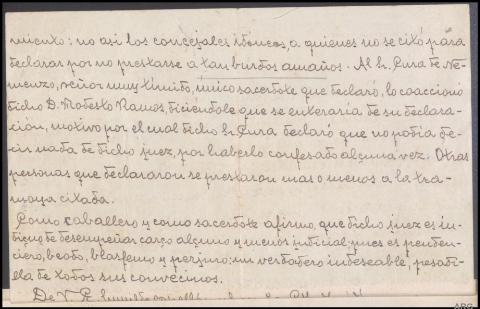 miento: no asi los concejales idoneos, a quienes no se citó para
declarar por no prestarse a tan burdos amaños. Al Sr. Cura de Ne-
menzo, señor muy tímido, unico sacerdote que declaró, lo coaccionó
dicho D. Modesto Ramos, diciendole que se enteraria de su declara-
ción, motivo por el cual dicho Sr. Cura declaró que no podia de-
cir nada de dicho juez, por haberlo confesado alguna vez. Otras
personas que declararon se prestaron mas o menos a la tra-
moya citada.
Como caballero y como sacerdote afirmo, que dicho juez es in-
digno de desempeñar cargo alguno y menos judicial, pues es penden-
ciero, beodo, blasfemo y perjuro; un verdadero indeseable, pesadi-
lla de todos sus convecinos.
De V. E. humilde
ARG